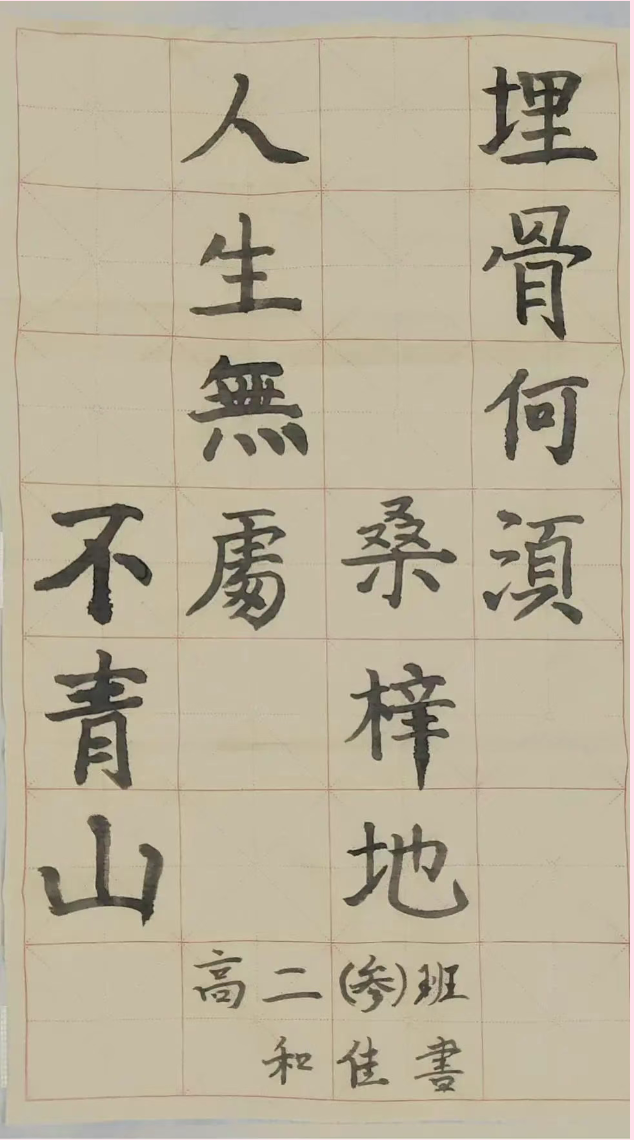 埋骨何須
桑梓地
人生無處
不青山
高二(参)班
和佳書